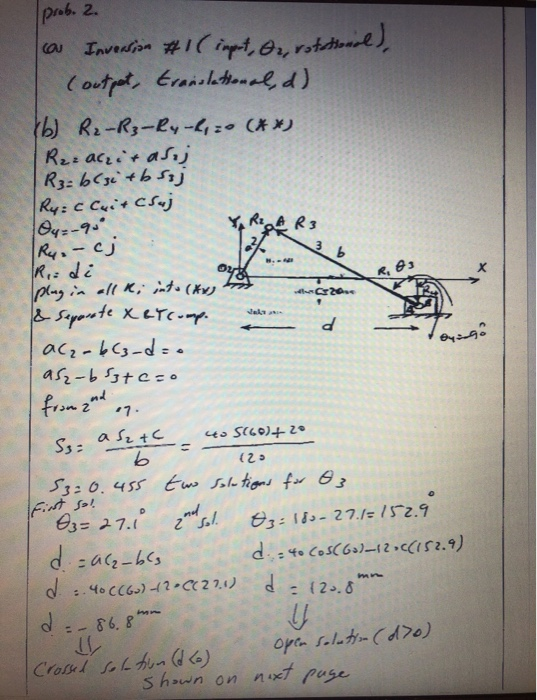 prob. 2.
(a) Inversion #1 (input, θ2, rotational),
(output, translational, d)
(b) R2-R3-R4-R1=0 (**)
R2= ac2i + as2j
R3= bc3i + bs3j
R4= c c4i + cs4j
θ4=-90°
R4= -cj
R1= di
plug in all Ri into (**)
& Separate X & Y Comp.
Y R2 A R3
a 2
3 b
O2
R1 θ3 X
C=20
R4
B
d
θ4=-90°
ac2 - bc3 - d = 0
as2 - bs3 + c = 0
from 2nd eq.
S3 = (as2 + c) / b = (40 S(60) + 20) / 120
S3 = 0.455 two solutions for θ3
First sol. θ3 = 27.1° 2nd sol. θ3 = 180 - 27.1 = 152.9°
d = ac2 - bc3 d = 40 cos(60) - 120c(152.9)
d = 40c(60) - 120c(27.1) d = 126.8 mm
d = -86.8 mm
⇓ ⇓
Crossed solution (d<0) open solution (d>0)
shown on next page